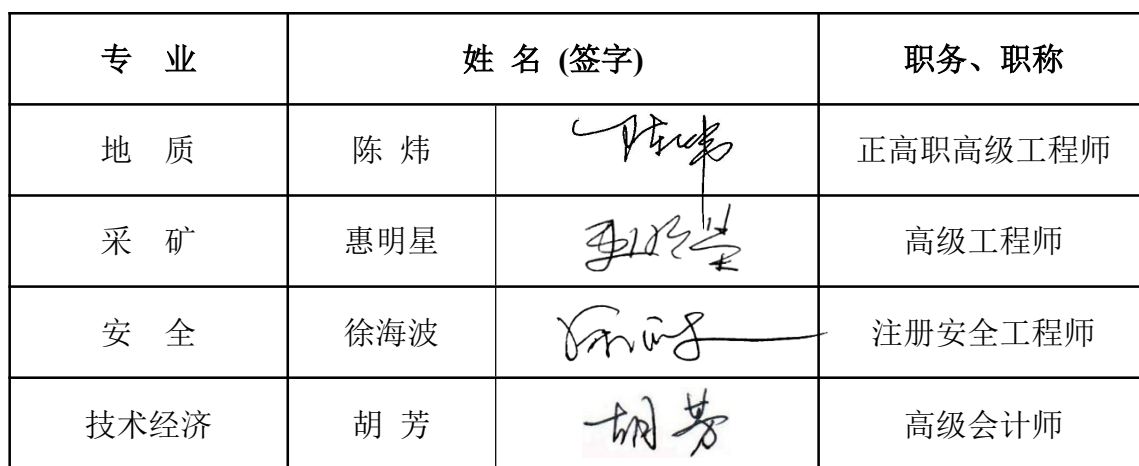 专 业 姓 名 (签字) 职务、职称
地 质 陈 炜 陈炜 正高职高级工程师
采 矿 惠明星 高级工程师
安 全 徐海波 注册安全工程师
技术经济 胡 芳 胡芳 高级会计师